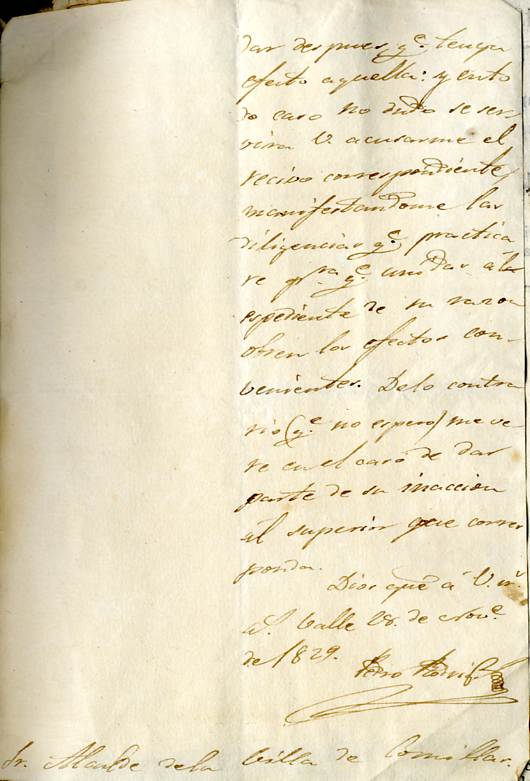 dar despues qe. tenga
efecto aquella: y en to
do caso no dudo se ser
vira V. acusarme el
recivo correspondiente
manifestandome las
diligencias qe. practica
re pra. qe. unidas a la
espediente de su razon
obren los efectos con-
venientes. Delo contra
rio (qe. no espero) me ve
re en el caso de dar
parte de su inaccion
al superior que corres
ponda.
Dios gue. á V. ms.
as. Valle 28. de Nove.
de 1829.
Pedro Rodrig
Sr. Alcalde de la Villa de Comillas.